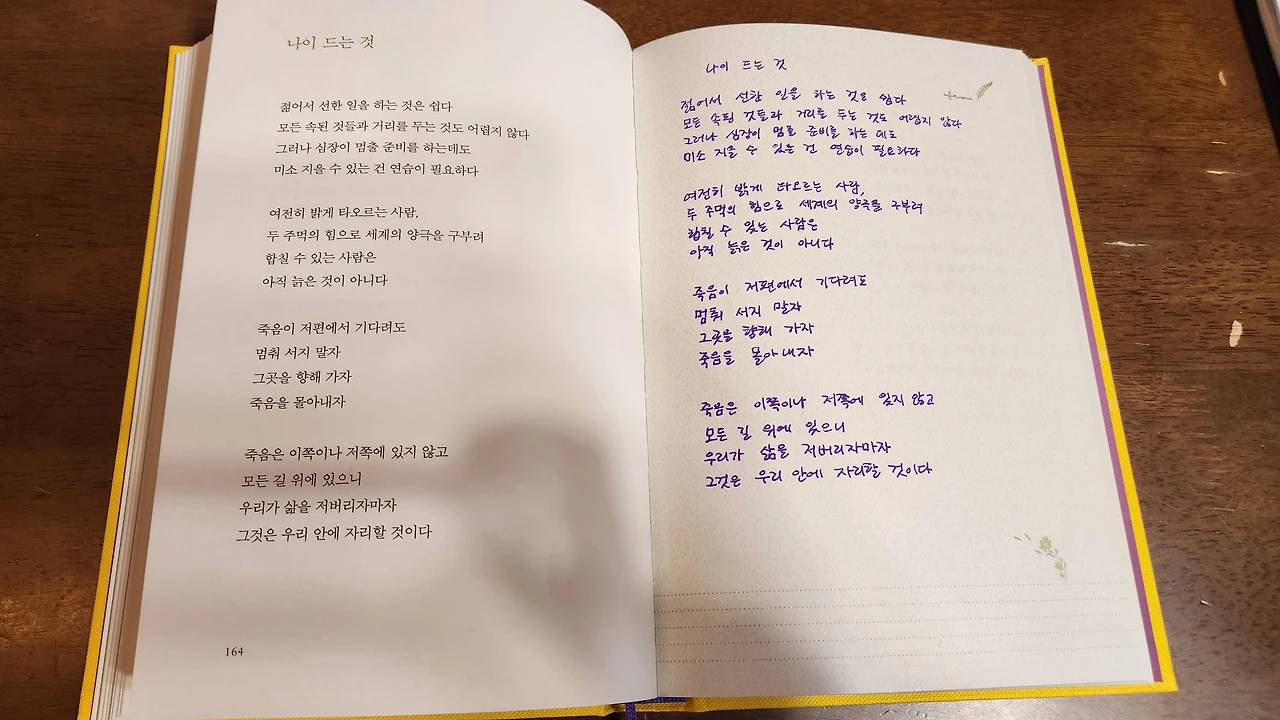 나이 드는 것
젊어서 선한 일을 하는 것은 쉽다
모든 속된 것들과 거리를 두는 것도 어렵지 않다
그러나 심장이 멈출 준비를 하는데도
미소 지을 수 있는 건 연습이 필요하다
여전히 밝게 타오르는 사람,
두 주먹의 힘으로 세계의 양극을 구부려
합칠 수 있는 사람은
아직 늙은 것이 아니다
죽음이 저편에서 기다려도
멈춰 서지 말자
그곳을 향해 가자
죽음을 몰아내자
죽음은 이쪽이나 저쪽에 있지 않고
모든 길 위에 있으니
우리가 삶을 저버리자마자
그것은 우리 안에 자리할 것이다
164
나이 드는 것
젊어서 선한 일을 하는 것은 쉽다
모든 속된 것들과 거리를 두는 것도 어렵지 않다
그러나 심장이 멈출 준비를 하는 데도
미소 지을 수 있는 건 연습이 필요하다
여전히 밝게 타오르는 사람,
두 주먹의 힘으로 세계의 양극을 구부려
합칠 수 있는 사람은
아직 늙은 것이 아니다
죽음이 저편에서 기다려도
멈춰 서지 말자
그곳을 향해 가자
죽음을 몰아내자
죽음은 이쪽이나 저쪽에 있지 않고
모든 길 위에 있으니
우리가 삶을 저버리자마자
그것은 우리 안에 자리할 것이다